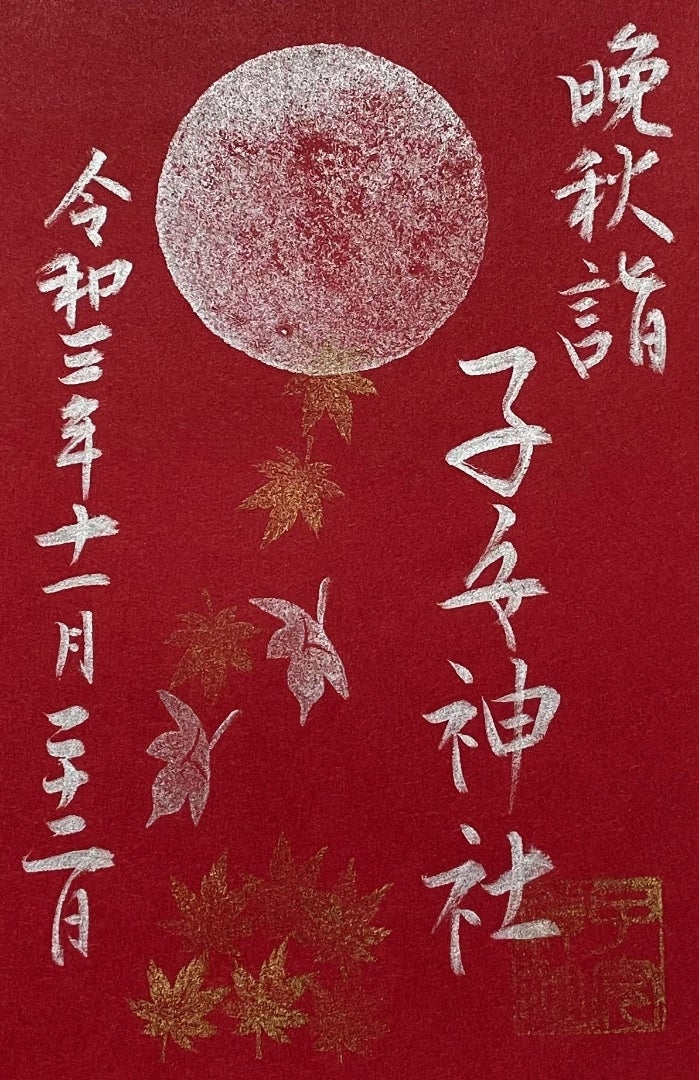 晩秋詣
子安神社
令和三年十一月二十二日